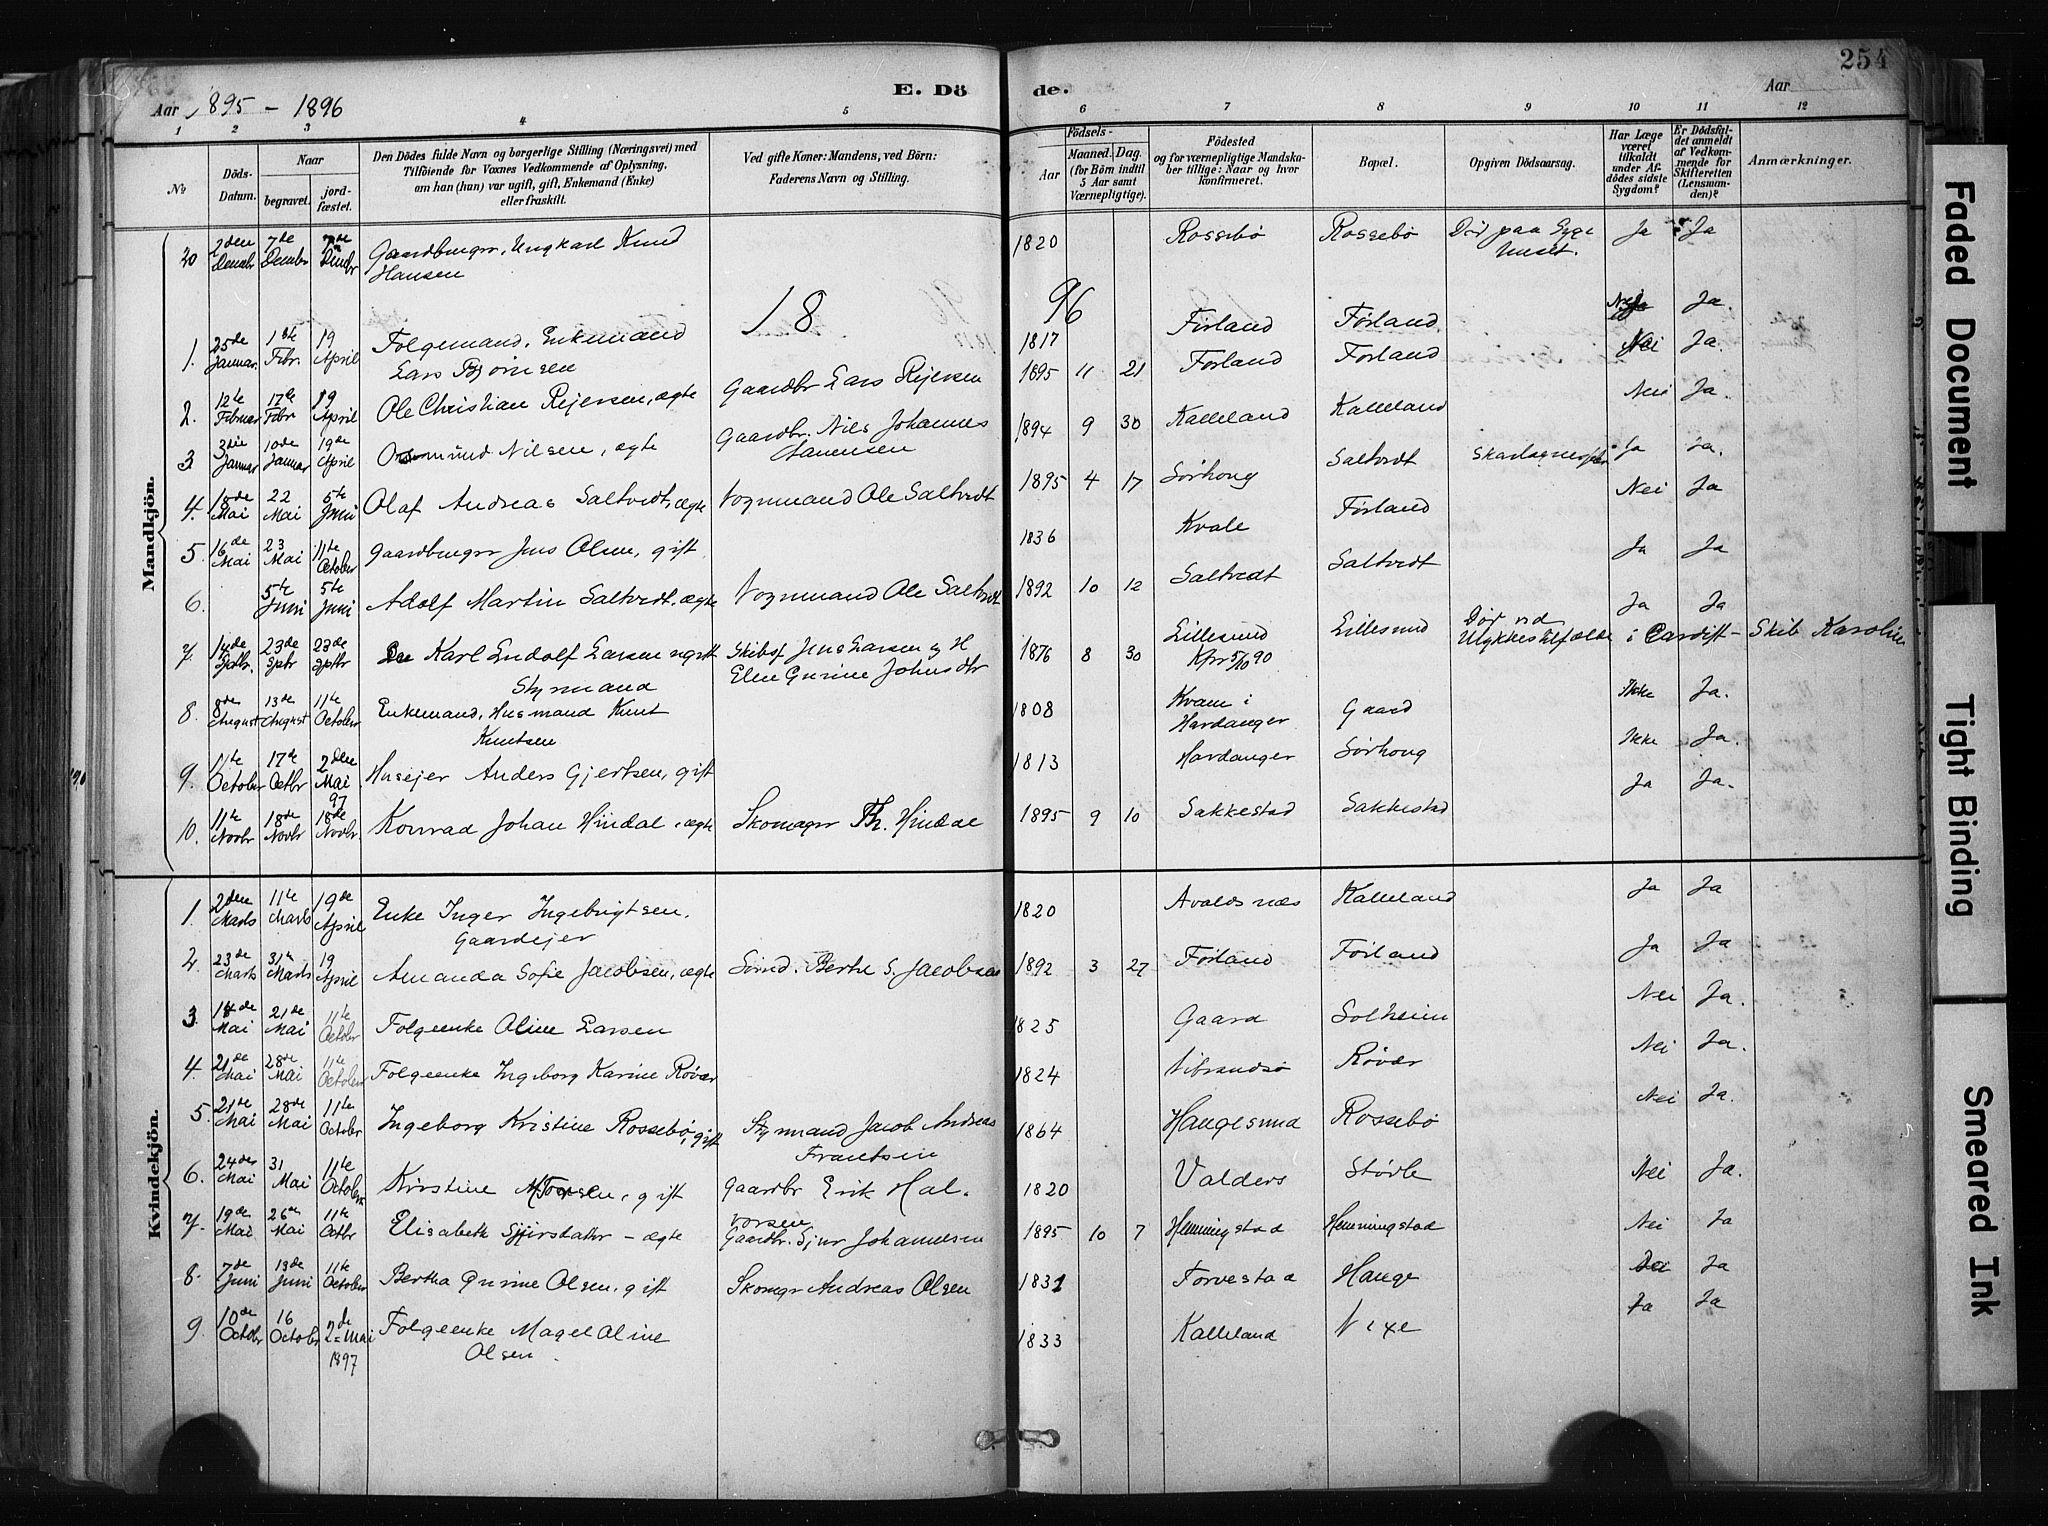 254
Aar 1895 - 1896
E. Döde.
Aar
1 2 3 4 5 6 7 8 9 10 11 12
No
Döds-Datum.
Naar
begravet.
jordfæstet.
Den Dödes fulde Navn og borgerlige Stilling (Næringsvei) med
Tilföiende for Voxnes Vedkommende af Oplysning,
om han (hun) var ugift, gift, Enkemand (Enke)
eller fraskilt.
Ved gifte Koner: Mandens, ved Börn:
Faderens Navn og Stilling.
Födsels-
Aar
Maaned. Dag.
(for Börn indtil
5 Aar samt
Værnepligtige).
Födested
og for værnepligtige Mandska-
ber tillige: Naar og hvor
konfirmeret.
Bopæl.
Opgiven Dödsaarsag.
Har Læge
været
tilkaldt
under Af-
dödes sidste
Sygdom?
Er Dödsfal-
det anmeldt
af Vedkom-
mende for
Skifteretten
(Lensman-
den)?
Anmærkninger.
Mandkjön.
20 2den Decmbr 7de Decmbr 7de Decmbr Gaardbruger, Ungkarl Knud Hansen 1820 Rossebö Rossebö Död paa Sygehuset. Ja Ja
1896
1. 25de Januar 1ste Febr. 19 April Folgemand, Enkemand Lars Bjørnsen 1817 Førland Førland Nei Ja.
2. 12te Februar 17de Febr 19 April Ole Christian Rejersen, ægte Gaardbr Lars Rejersen 1895 11 21 Førland Førland Nei Ja.
3. 3die Januar 10de Januar 19de April Osmund Nilsen, ægte Gaardbr. Nils Johannes 1894 9 30 Kalleland Kalleland Nei Ja.
4. 18de Mai 22 Mai 5te Juni Olaf Andreas Saltvedt, ægte Vognmand Ole Saltvedt 1895 4 17 Sørhoug Saltvedt Skarlagensfeber Ja Ja.
5. 16de Mai 23 Mai 11te October Gaardbruger Jens Olsen, gift 1836 Kvale Førland Nei Ja
6. 5te Juni 5te Juni Adolf Martin Saltvedt, ægte Vognmand Ole Saltvedt 1892 10 12 Saltvedt Saltvedt Ja Ja
7. 14de Sptbr. 23de Sptr 23de Sptbr Karl Ludolf Larsen ugift Styrmand Skibsf Jens Larsen og H Elen Gurine Johnsdtr 1876 8 30 Lillesund Kfr 5/10 90 Lillesund Dør ved Ulykkestilfælde i Cardiff - Skib Karoline Ja Ja
8. 8de August 13de August 11te October Enkemand, Husmand Knut Knutsen 1808 Kvam i Hardanger Gaard Ikke Ja.
9. 11te October 17de Octbr 2den Mai 97 Husejer Anders Gjertsen, gift 1813 Hardanger Sørhoug Ikke Ja.
10. 11te Novbr 18de Novbr 18de Novbr. Konrad Johan Hindal, ægte Skomager Th. Hindal 1895 9 10 Sakkestad Sakkestad Ja Ja.
Kvindekjön.
1. 2den Marts 11te Marts 19de April Enke Inger Ingebrigtsen. Gaardejer 1820 Avaldsnæs Kalleland Ja Ja
2. 23de Marts 31te Marts 19 April Amanda Sofie Jacobsen, ægte Berthe S. Jacobsen 1892 3 27 Førland Førland Ja Ja
3. 14de Mai 21de Mai 11te October Folgeenke Oline Larsen 1825 Gaard Solheim Nei Ja.
4. 21de Mai 28de Mai 11te October Folgeenke Ingeborg Karine Røvær 1824 Vibrandsø Røvær Nei Ja.
5. 21de Mai 28de Mai 11te Octobr Ingeborg Kristine Rossebø, gift Styrmand Jacob Andreas Frantsen 1864 Haugesund Rossebø Nei Ja.
6. 24des Mai 31 Mai 11te October Kristine, gift Gaardbr Erik Halvorsen 1820 Valders Støvle Nei Ja.
7. 19de Mai 26de Mai 11te Octbr Elisabeth Sjursdatter - ægte Gaardbr. Sjur Johannesen 1895 10 7 Hemmingstad Hemmingstad Nei Ja
8. 7de Juni 13de Juni 11te October Bertha Gurine Olsen, gift Skomgr Andreas Olsen 1831 Torvestad Hauge Nei Ja
9. 10de Octobr 16 Octobr 2de Mai 1897 Folgeenke Magel Oline Olsen. 1833 Kalleland Vixe Ja Ja
Faded Document
Tight Binding
Smeared Ink